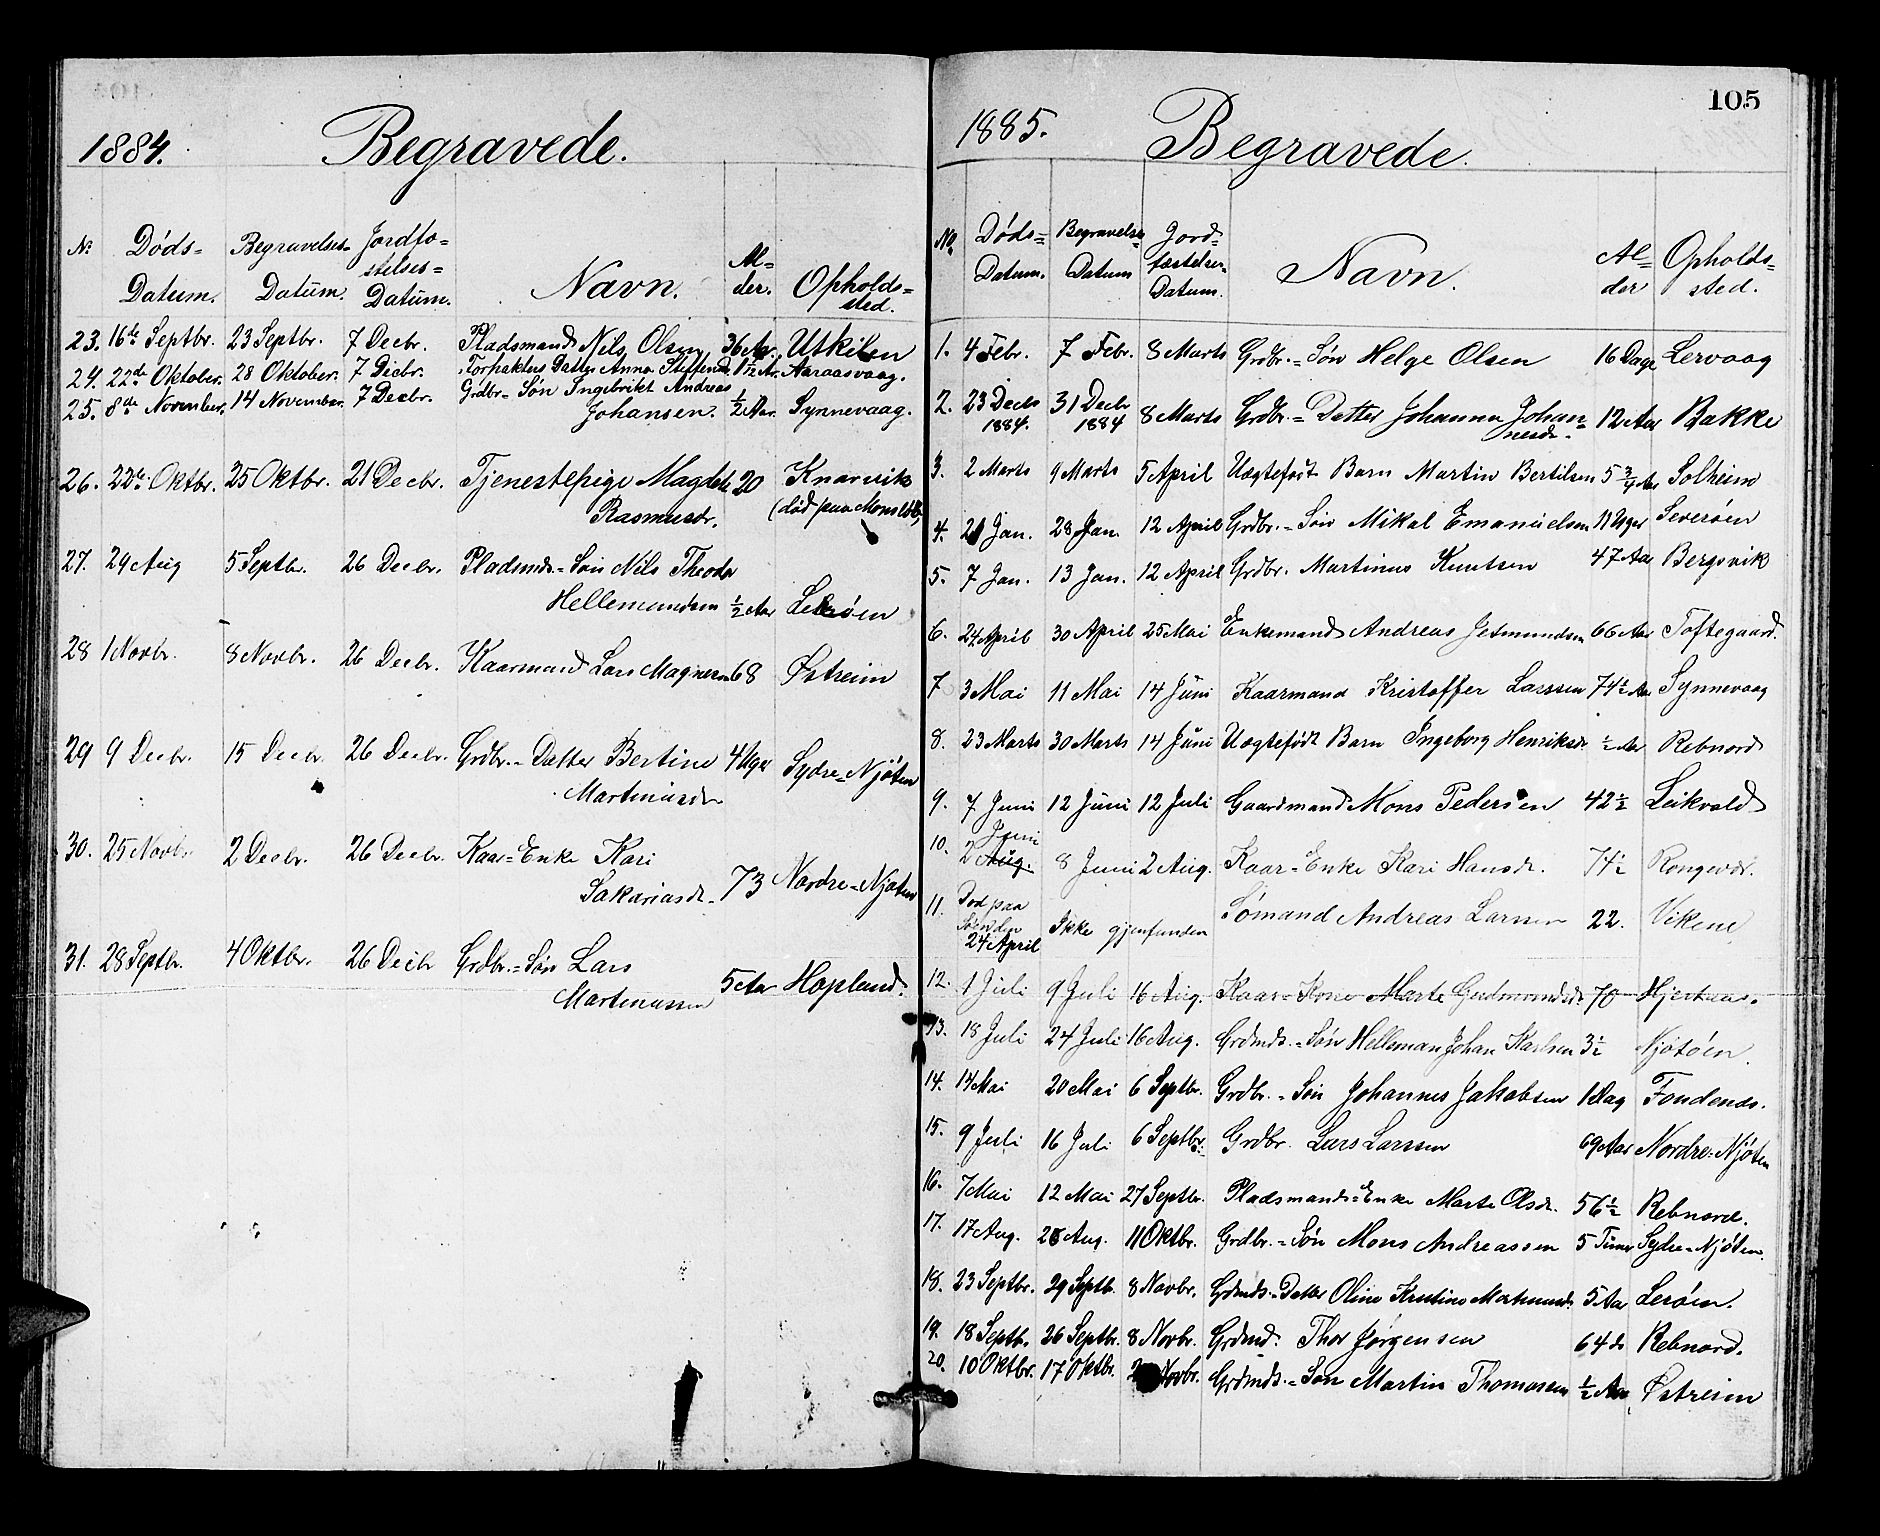 1884. Begravede.
No Døds= Begravelses= Jordfæ= Navn. Al= Opholds=
Datum. Datum. stelses= der. sted.
Datum.
23. 16de Septbr. 23 Septbr. 7 Decbr. Pladsmand Nils Olsen 36 Aar. Utkilen
24. 22de Oktober. 28 Oktober. 7 Decbr. Forpakters Datter Anna Steffensd. Aaraasvaag.
25. 8de November. 14 November. 7 Decbr. Grdbr= Søn Ingebrikt Andreas
Johansen. ½ Aar. Synnevaag.
26. 22de Oktbr. 25 Oktbr. 21 Decbr. Tjenestepige Magdele 20 Knarvik
Rasmusdr. (död paa
27. 29 Aug 5 Septbr. 26 Decbr. Pladsmds.= Søn Nils Theodor
Hellemundsen ½ Aar Lerøen
28 1 Novbr. 8 Novbr. 26 Decbr. Kaarmand Lars Magnesen 68 Østreim
29 9 Decbr. 15 Decbr. 26 Decbr. Grdbr.= Datter Bertine 4 Uger Sydre=Njøten
Martinusdr
30. 25 Novbr. 2 Decbr. 26 Decbr. Kaar=Enke Kari
Sakariasdr. 73 Nordre=Njøten
31. 28 Septbr. 4 Oktbr. 26 Decbr Grdbr.=Søn Lars
Martinussen 5 Aar Hopland.
105
1885. Begravede.
No. Døds= Begravelses= Jord= Navn. Al= Opholds=
Datum. Datum fæstelses= der sted.
Datum.
1. 4 Febr. 7 Febr. 8 Marts Grdbr.= Søn Helge Olsen 16 Dage Lervaag
2. 23 Decbr 31 Decbr 8 Marts Grdbr.= Datter Johanna Johan= 12 Aar Bakke
1884. 1884 nesdr.
3. 2 Marts 9 Marts 5 April Uægtefødt Barn Martin Bertilsen 5 ¾ Aar Solheim
4. 21 Jan. 28 Jan. 12 April Grdbr.= Søn Mikal Emanuelsen 11 Uger Severøen
5. 7 Jan. 13 Jan. 12 April Grdbr. Martinus Knutsen 47 Aar Bergsvik
6. 24 April 30 April 25 Mai Enkemand Andreas Jetmundsen 66 Aar Toftegaard.
7 3 Mai 11 Mai 14 Juni Kaarmand Kristoffer Larssen 74½ Aar Synnevaag
8. 23 Marts 30 Marts 14 Juni Uægtefødt Barn Ingeborg Henriksdr ½ Aar Rebnord
9. 7 Juni 12 Juni 12 Juli Gaardmand Mons Pedersen 42½ Leikvold
10. Juni
2 Aug. 8 Juni 2 Aug. Kaar=Enke Kari Hansdr. 74½ Rongevær.
11. Død paa
Søen den Ikke gjenfunden Sømand Andreas Larsen 22. Vikene
24 April
12. 1 Juli 9 Juli 16 Aug. Kaar=Kone Marte Gudmundsdr. 70 Hjertaas.
13. 18 Juli 24 Juli 16 Aug. Grdmds.=Søn Helleman Johan Karlsen 3½ Njøtøen.
14. 14 Mai 20 Mai 6 Septbr. Grdbr.= Søn Johannes Jakobsen 1 Dag Fondenes.
15. 9 Juli 16 Juli 6 Septbr. Grdbr. Lars Larssen 69 Aar Nordre=Njøten
16. 7 Mai 12 Mai 27 Septbr. Pladsmands=Enke Marte Olsdr. 56½ Rebnord.
17. 17 Aug. 26 Aug. 11 Oktbr. Grdbr.= Søn Mons Andreassen 5 Timer Sydre=Njøten
18. 23 Septbr. 29 Septb. 8 Novbr. Grdmds.=Datter Oline Kristine Martinusdr. 5 Aar Lerøen.
19. 18 Septbr. 26 Septbr. 8 Novbr. Grdmd. Thor Jørgensen 64 do Rebnord.
20. 10 Oktbr. 17 Oktbr. Novbr. Grdmds.= Søn Martin Thomassen ½ Aar Østreim